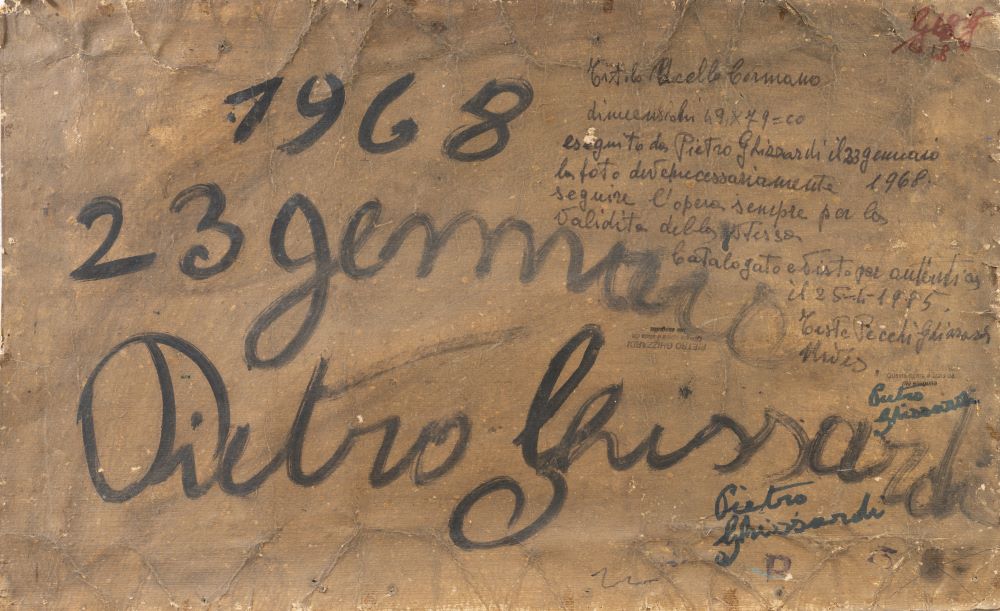 1968
23 gennaio
Pietro Ghizzardi
Titolo Uccello
dimensioni 49 x 79 =
eseguito da Pietro Ghizzardi il 23 gennaio
la foto deve necessariamente 1968.
seguire l'opera sempre per la
validità della stessa
Catalogato e visto per autentica
il 25-
Pietro
Ghizzardi
Pietro
Ghizzardi
PIETRO GHIZZARDI